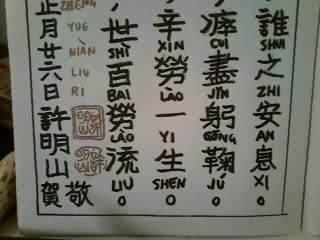 誰 SHUI 之 ZHI 安 AN 息 XI 。
瘁 CUI 盡 JIN 躬 GONG 鞠 JU 。
辛 XIN 勞 LAO 一 YI 生 SHEN 。
世 SHI 百 BAI 勞 LAO 流 LIU 。
ZHENG YUE NIAN LIU RI
敬
正月廿六日許明山賀